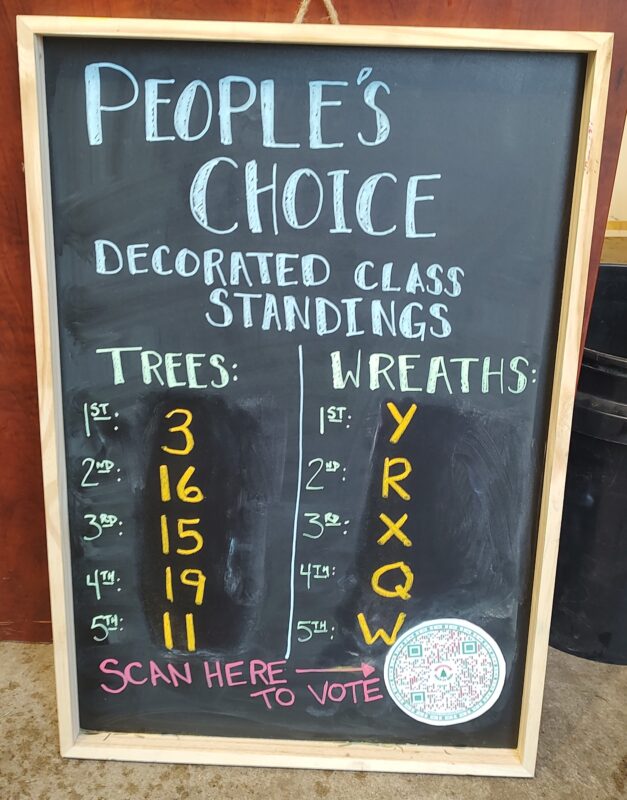 PEOPLE'S
CHOICE
DECORATED CLASS
STANDINGS
TREES:
1ST: 3
2ND: 16
3RD: 15
4TH: 19
5TH: 11
WREATHS:
1ST: Y
2ND: R
3RD: X
4TH: Q
5TH: W
SCAN HERE
TO VOTE